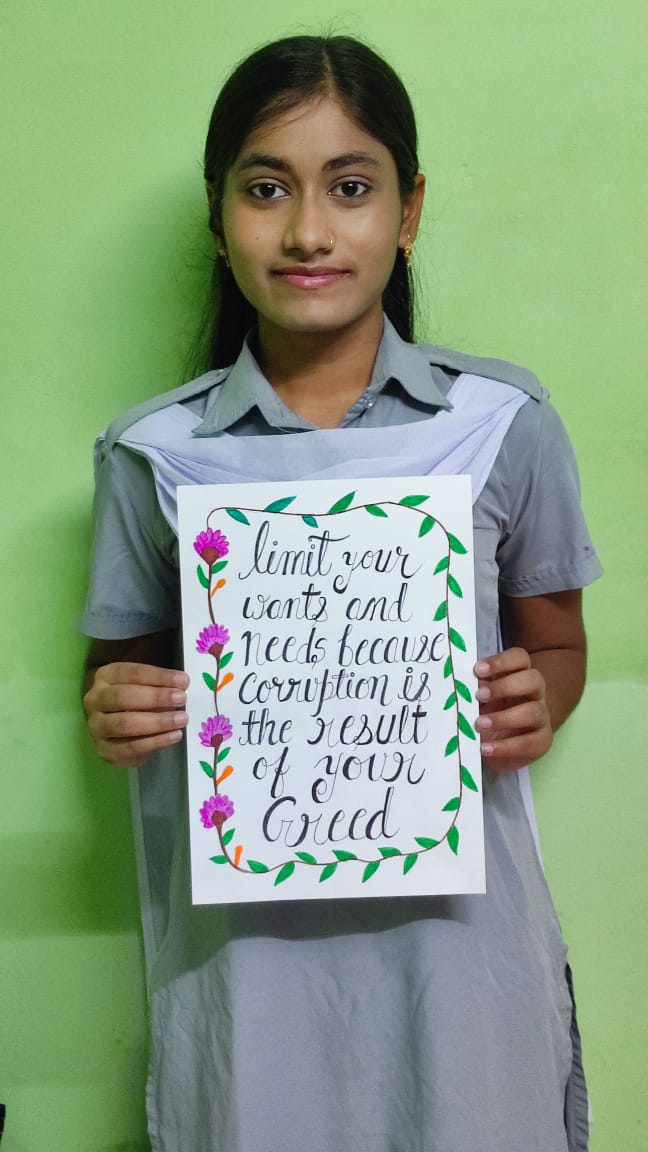 limit your
wants and
needs because
corruption is
the result
of your
Greed